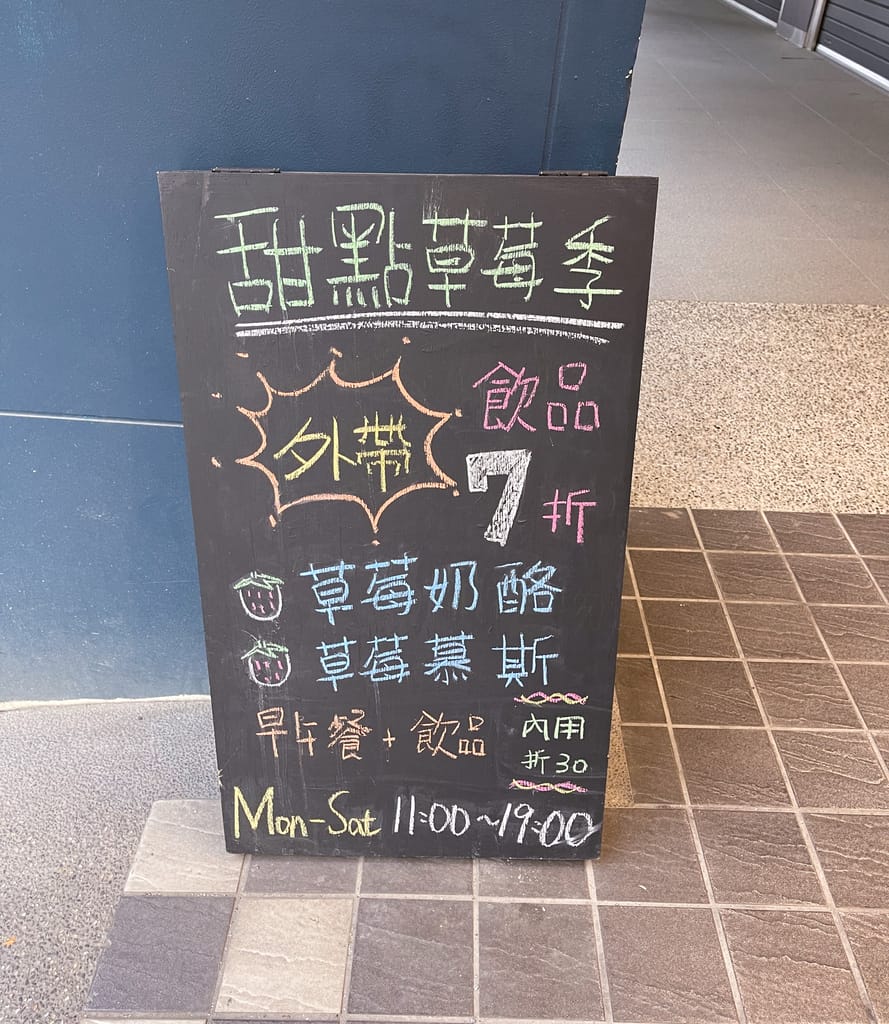 甜點草莓季
外帶 飲品
7折
草莓奶酪
草莓慕斯
早午餐+飲品 內用
折30
Mon-Sat 11:00~19:00